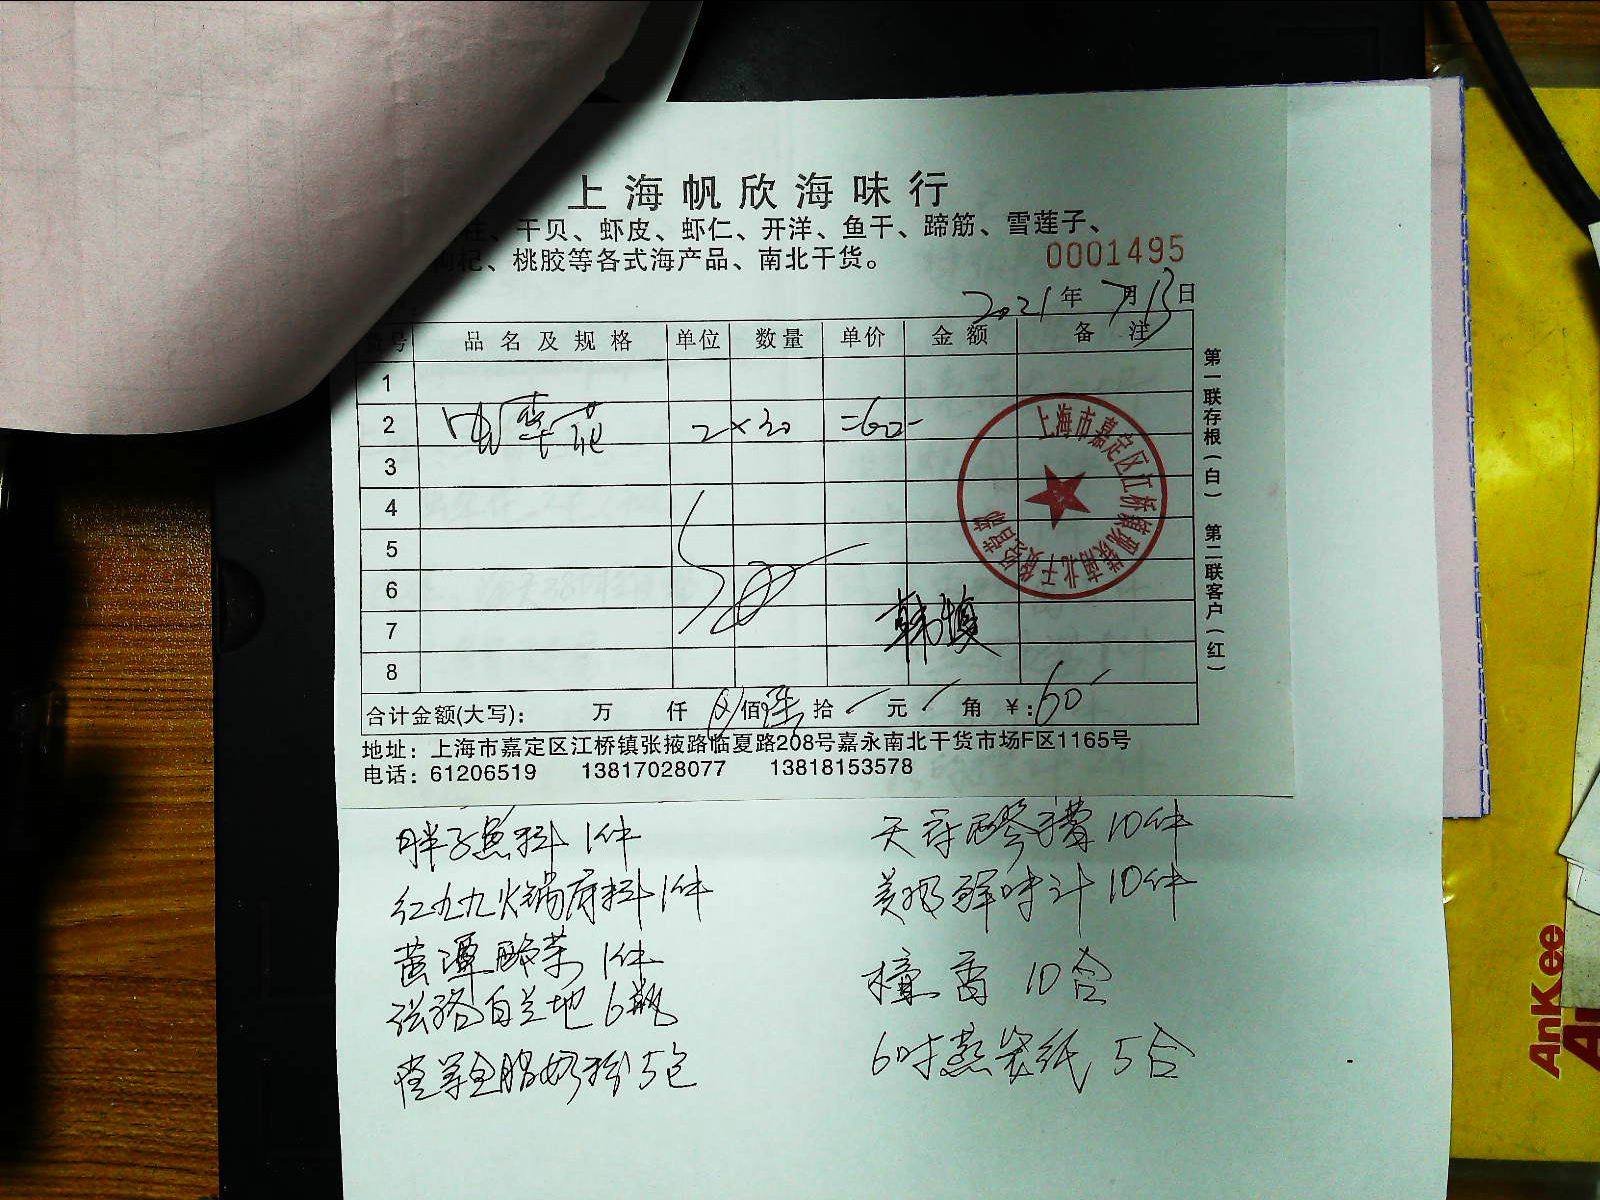 上海帆欣海味行
、干贝、虾皮、虾仁、开洋、鱼干、蹄筋、雪莲子、
枸杞、桃胶等各式海产品、南北干货。
0001495
2021年7月13日
货号 品名及规格 单位 数量 单价 金额 备注
1
2 2×30 =60-
3
4
5
6
7
8
韩慎
合计金额(大写): 万 仟 佰 陆拾 元 角 ¥:60
地址：上海市嘉定区江桥镇张掖路临夏路208号嘉永南北干货市场F区1165号
电话：61206519 13817028077 13818153578
第一联存根(白) 第二联客户(红)
上海市嘉定区江桥镇 南北干货经营部
胖子鱼料 1件
红九九火锅底料 1件
酸菜 1件
白兰地 6瓶
全脂奶粉 5包
天府醪糟 10件
美极鲜味汁 10件
10合
6吋蒸笼纸 5合
AnKee